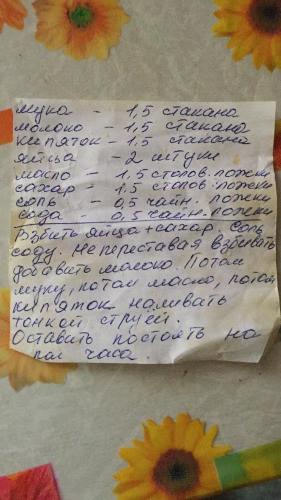 мука - 1,5 стакана
молоко - 1,5 стакана
кипяток - 1,5 стакана
яйца - 2 штуки
масло - 1,5 столов. ложки
сахар - 1,5 столов. ложки
соль - 0,5 чайн. ложки
сода - 0,5 чайн. ложки
Взбить яйца + сахар. Соль
соду. Непереставая взбивать
добавить молоко. Потом
муку, потом масло, потом
кипяток наливать
тонкой струёй.
Оставить постоять на
пол часа.